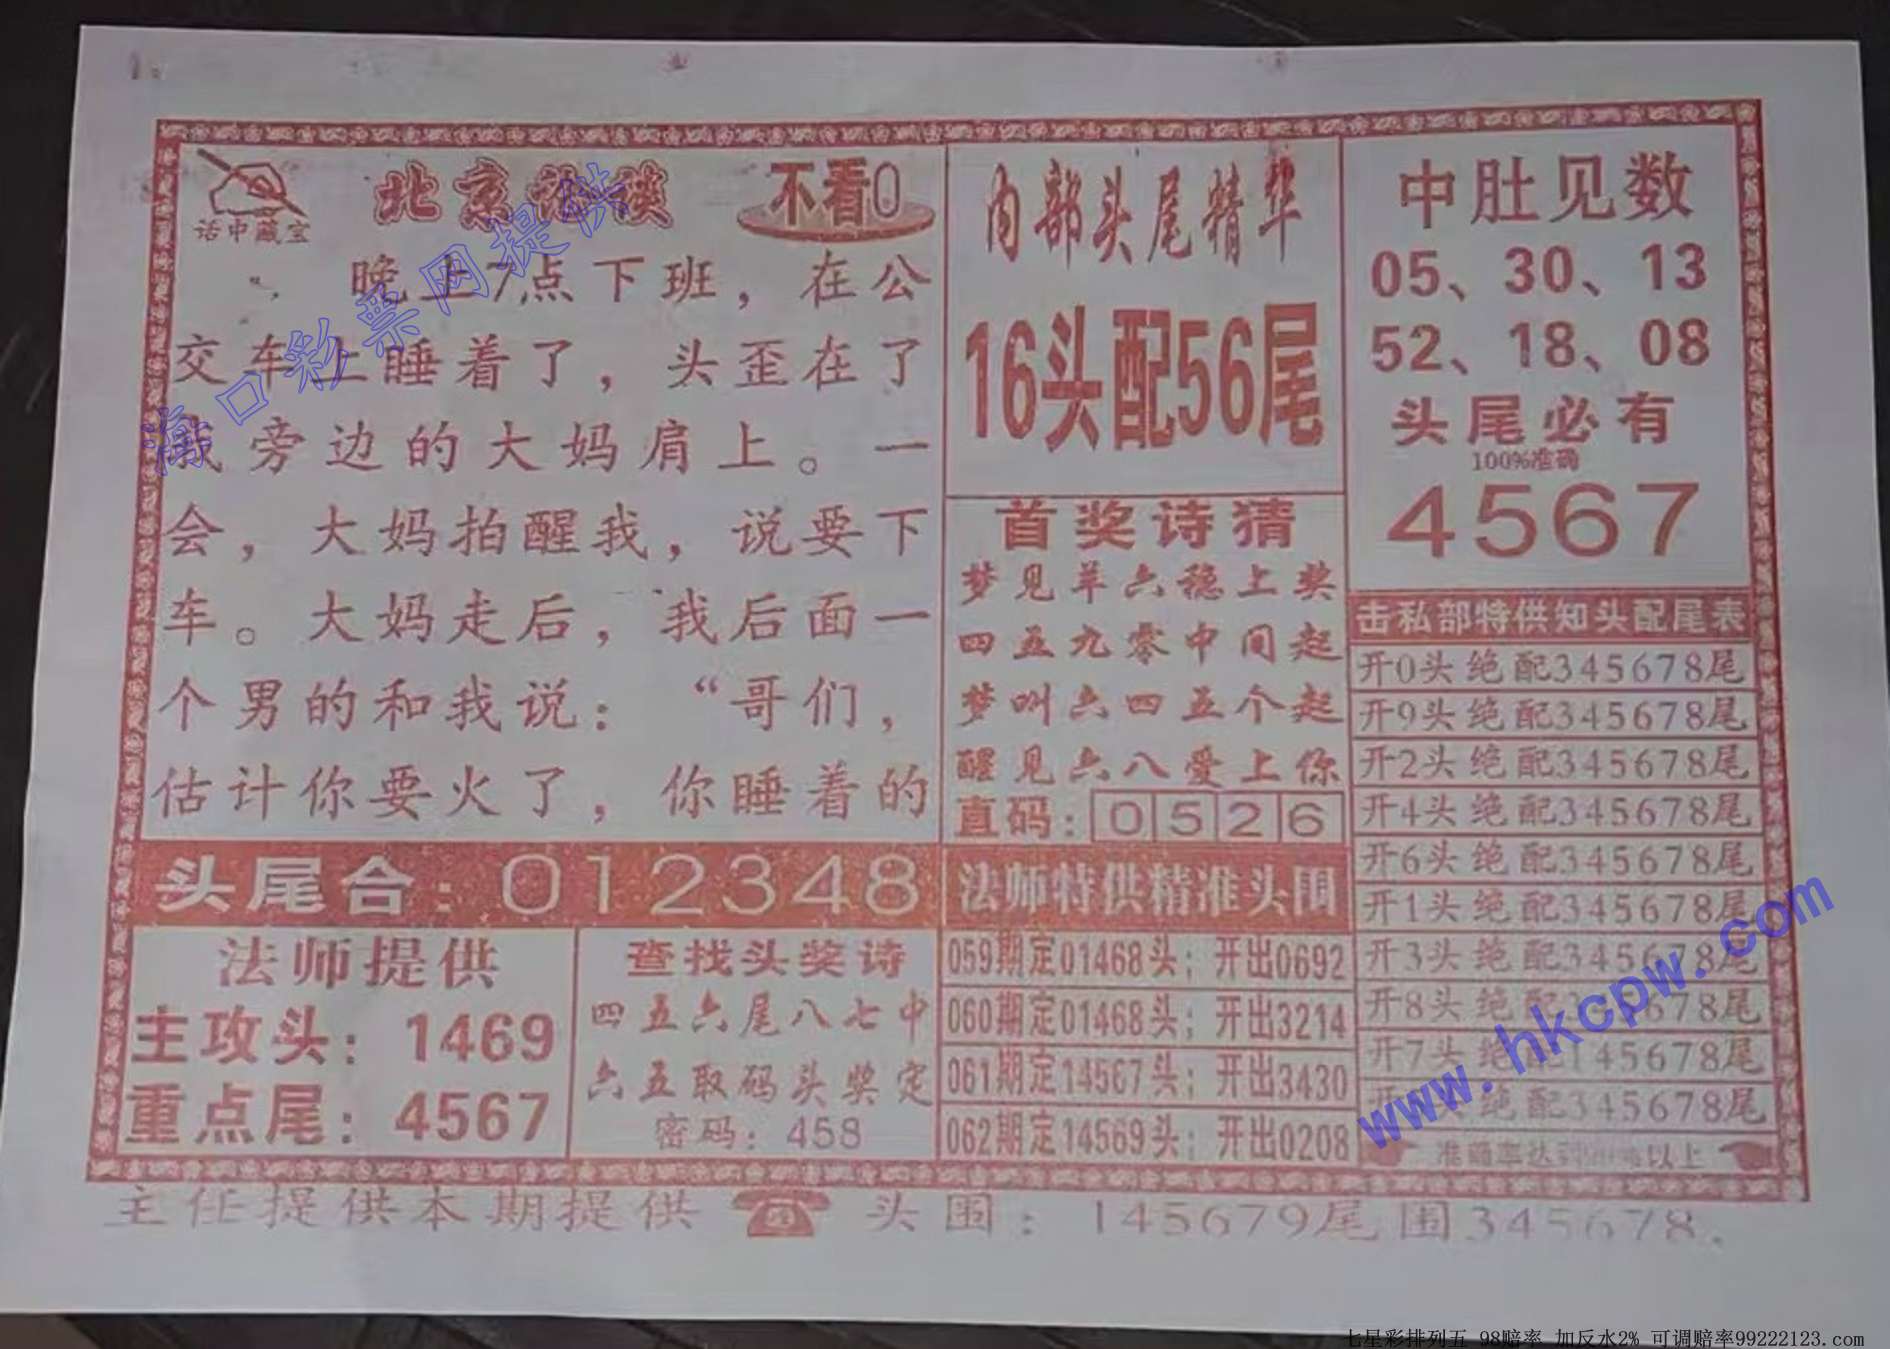 话中藏宝
北京话谈
不看0
晚上7点下班，在公
交车上睡着了，头歪在了
我旁边的大妈肩上。一
会，大妈拍醒我，说要下
车。大妈走后，我后面一
个男的和我说：“哥们，
估计你要火了，你睡着的
头尾合：012348
法师提供
主攻头：1469
重点尾：4567
查找头奖诗
四五六尾八七中
六五取码头奖定
密码：458
内部头尾精华
16头配56尾
首奖诗猜
梦见羊六稳上奖
四五九零中间起
梦叫六四五个起
醒见六八爱上你
直码：0526
法师特供精准头围
059期定01468头；开出0692
060期定01468头；开出3214
061期定14567头；开出3430
062期定14569头；开出0208
中肚见数
05、30、13
52、18、08
头尾必有
100%准确
4567
击私部特供知头配尾表
开0头绝配345678尾
开9头绝配345678尾
开2头绝配345678尾
开4头绝配345678尾
开6头绝配345678尾
开1头绝配345678尾
开3头绝配345678尾
开8头绝配345678尾
开7头绝145678尾
头绝配345678尾
准确率达到以上
主任提供本期提供 头围：145679尾围345678.
海口彩票网提供
www.hkcpw.com
七星彩排列五 98赔率 加反水2% 可调赔率99222123.com